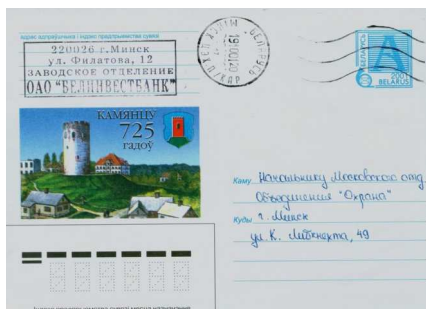 220026 г. Минск
ул. Филатова, 12
ЗАВОДСКОЕ ОТДЕЛЕНИЕ
ОАО "БЕЛИНВЕСТБАНК"
БЕЛАРУСЬ
А
2001
BELARUS
КАМЯНЦУ
725
гадоў
Каму Начальнику Московского отд.
Объединения "Охрана"
Куды г. Минск
ул. К. Либкнехта, 49